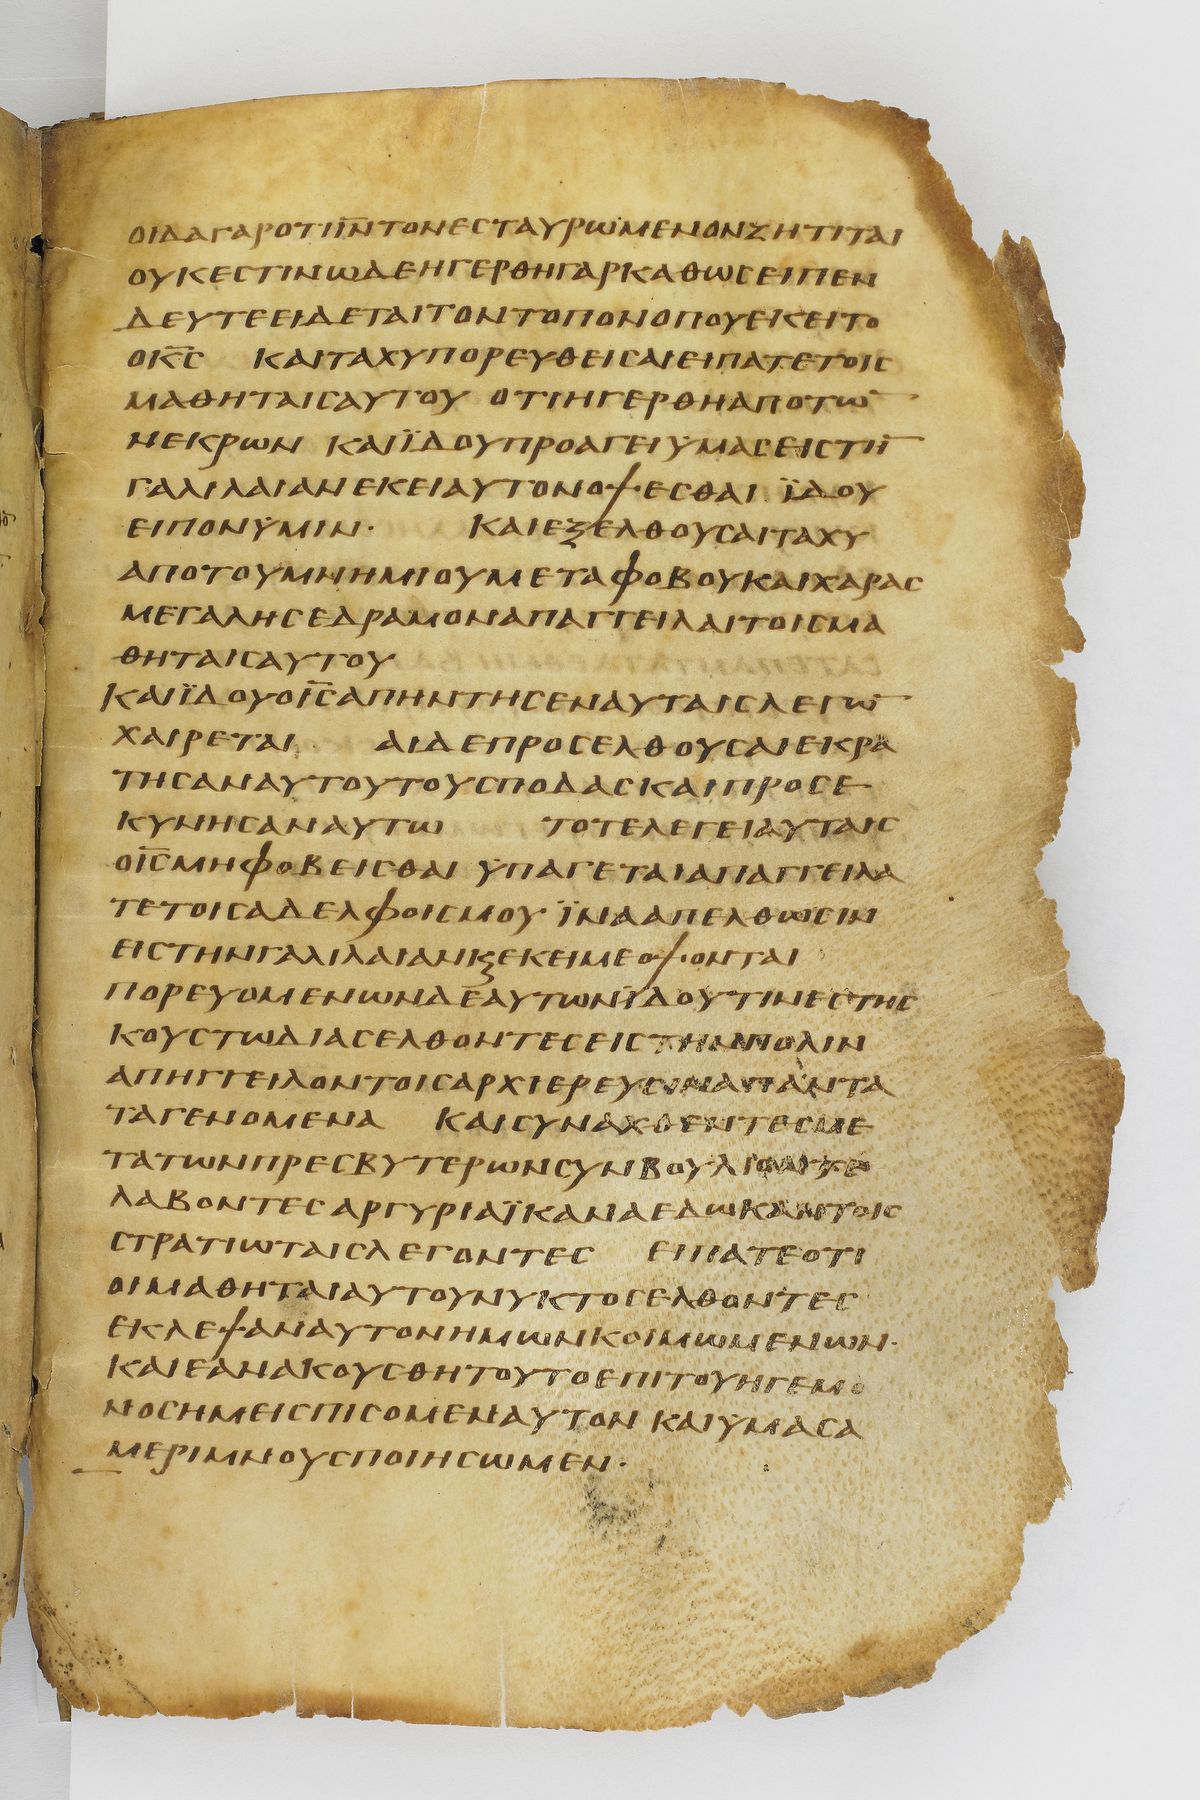 ΟΙΔΑΓΑΡΟΤΙΙ̅Ν̅ΤΟΝΕСΤΑΥΡΩΜΕΝΟΝΖΗΤΙΤΑΙ
ΟΥΚΕСΤΙΝΩΔΕΗΓΕΡΘΗΓΑΡΚΑΘΩСΕΙΠΕΝ
ΔΕΥΤΕΕΙΔΕΤΑΙΤΟΝΤΟΠΟΝΟΠΟΥΕΚΕΙΤΟ
ΟΚ̅С̅ ΚΑΙΤΑΧΥΠΟΡΕΥΘΕΙСΑΙΕΙΠΑΤΕΤΟΙС
ΜΑΘΗΤΑΙСΑΥΤΟΥ ΟΤΙΗΓΕΡΘΗΑΠΟΤΩ̅
ΝΕΚΡΩΝ ΚΑΙΪΔΟΥΠΡΟΑΓΕΙΫΜΑСΕΙСΤΗ̅
ΓΑΛΙΛΑΙΑΝΕΚΕΙΑΥΤΟΝΟΨΕСΘΑΙ ΪΔΟΥ
ΕΙΠΟΝΫΜΙΝ· ΚΑΙΕΞΕΛΘΟΥСΑΙΤΑΧΥ
ΑΠΟΤΟΥΜΝΗΜΙΟΥΜΕΤΑΦΟΒΟΥΚΑΙΧΑΡΑС
ΜΕΓΑΛΗСΕΔΡΑΜΟΝΑΠΑΓΓΕΙΛΑΙΤΟΙСΜΑ
ΘΗΤΑΙСΑΥΤΟΥ
ΚΑΙΪΔΟΥΟΙ̅С̅ΑΠΗΝΤΗСΕΝΑΥΤΑΙСΛΕΓΩ̅
ΧΑΙΡΕΤΑΙ ΑΙΔΕΠΡΟСΕΛΘΟΥСΑΙΕΚΡΑ
ΤΗСΑΝΑΥΤΟΥΤΟΥСΠΟΔΑСΚΑΙΠΡΟСΕ
ΚΥΝΗСΑΝΑΥΤΩ ΤΟΤΕΛΕΓΕΙΑΥΤΑΙС
ΟΙ̅С̅ΜΗΦΟΒΕΙСΘΑΙ ΫΠΑΓΕΤΑΙΑΠΑΓΓΕΙΛΑ
ΤΕΤΟΙСΑΔΕΛΦΟΙСΜΟΥ ΪΝΑΑΠΕΛΘΩСΙΝ
ΕΙСΤΗΝΓΑΛΙΛΑΙΑΝϏΕΚΕΙΜΕΟΨΟΝΤΑΙ
ΠΟΡΕΥΟΜΕΝΩΝΔΕΑΥΤΩΝΪΔΟΥΤΙΝΕСΤΗС
ΚΟΥСΤΩΔΙΑСΕΛΘΟΝΤΕСΕΙСΤΗΝΠΟΛΙΝ
ΑΠΗΓΓΕΙΛΟΝΤΟΙСΑΡΧΙΕΡΕΥСΙΝΑΠΑΝΤΑ
ΤΑΓΕΝΟΜΕΝΑ ΚΑΙСΥΝΑΧΘΕΝΤΕСΜΕ
ΤΑΤΩΝΠΡΕСΒΥΤΕΡΩΝ
ΛΑΒΟΝΤΕСΑΡΓΥΡΙΑΪΚΑΝΑΕΔΩΚΑΝΤΟΙС
СΤΡΑΤΙΩΤΑΙСΛΕΓΟΝΤΕС ΕΙΠΑΤΕΟΤΙ
ΟΙΜΑΘΗΤΑΙΑΥΤΟΥΝΥΚΤΟСΕΛΘΟΝΤΕС
ΕΚΛΕΨΑΝΑΥΤΟΝΗΜΩΝΚΟΙΜΩΜΕΝΩΝ·
ΚΑΙΕΑΝΑΚΟΥСΘΗΤΟΥΤΟΕΠΙΤΟΥΗΓΕΜΟ
ΝΟСΗΜΕΙСΠΙСΟΜΕΝΑΥΤΟΝ ΚΑΙΫΜΑСΑ
ΜΕΡΙΜΝΟΥСΠΟΙΗСΩΜΕΝ·